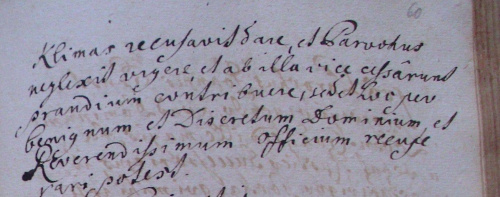 60
Klimas recusavit dare, et Parochus
neglexit urgere, et ab illa vice cessarunt
prandium contribuere, sed et hoc per
benignum et Discretum Dominium et
Reverendissimum Officium recupe
rari potest.